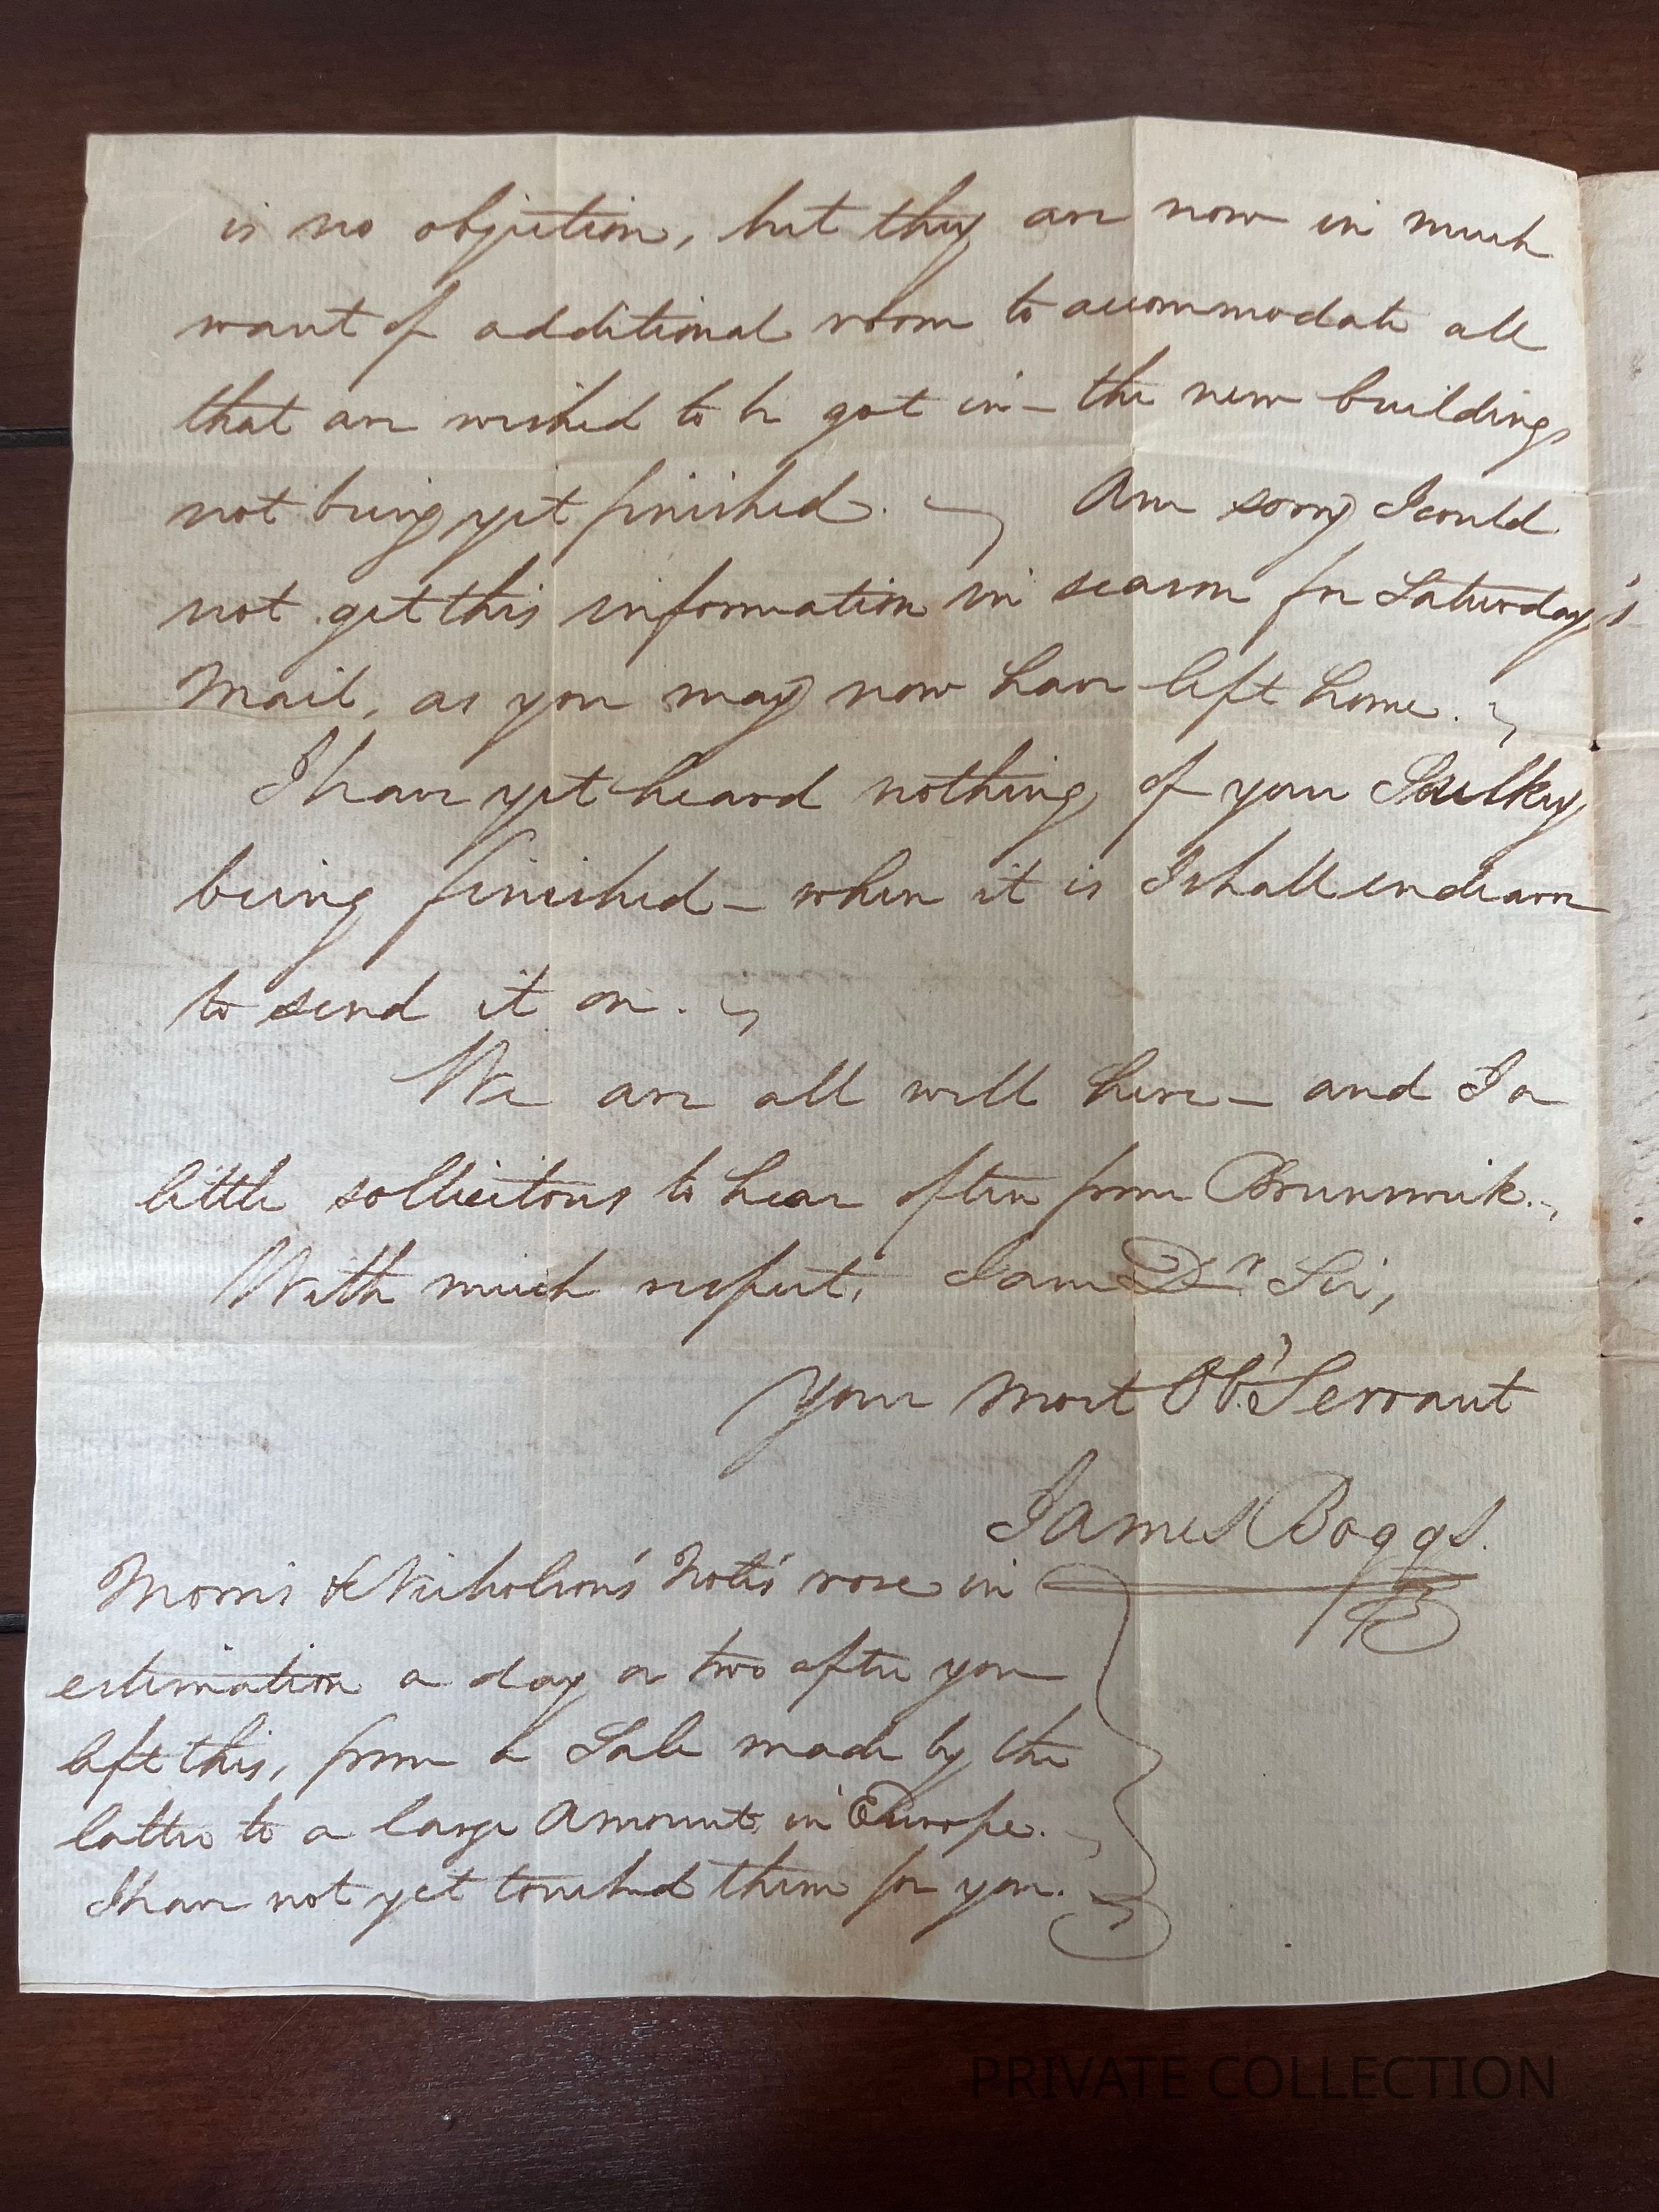 is no objection, but they are now in much
want of additional room to accommodate all
that are wished to be got in – the new buildings
not being yet finished. Am sorry I could
not get this information in season for Saturday's
Mail, as you may now have left home.
I have yet heard nothing of your Sulkey
being finished – when it is I shall endeavor
to send it on.
We are all well here – and I a
little sollicitous to hear often from Brunswick.
With much respect, I am Dr. Sir,
Your most Obt. Servant
James Boggs.
Morris & Nicholson's Note's rose in
estimation a day or two after you
left this, from a Sale made by the
latter to a large Amount, in Europe.
I have not yet touched them for you.
PRIVATE COLLECTION